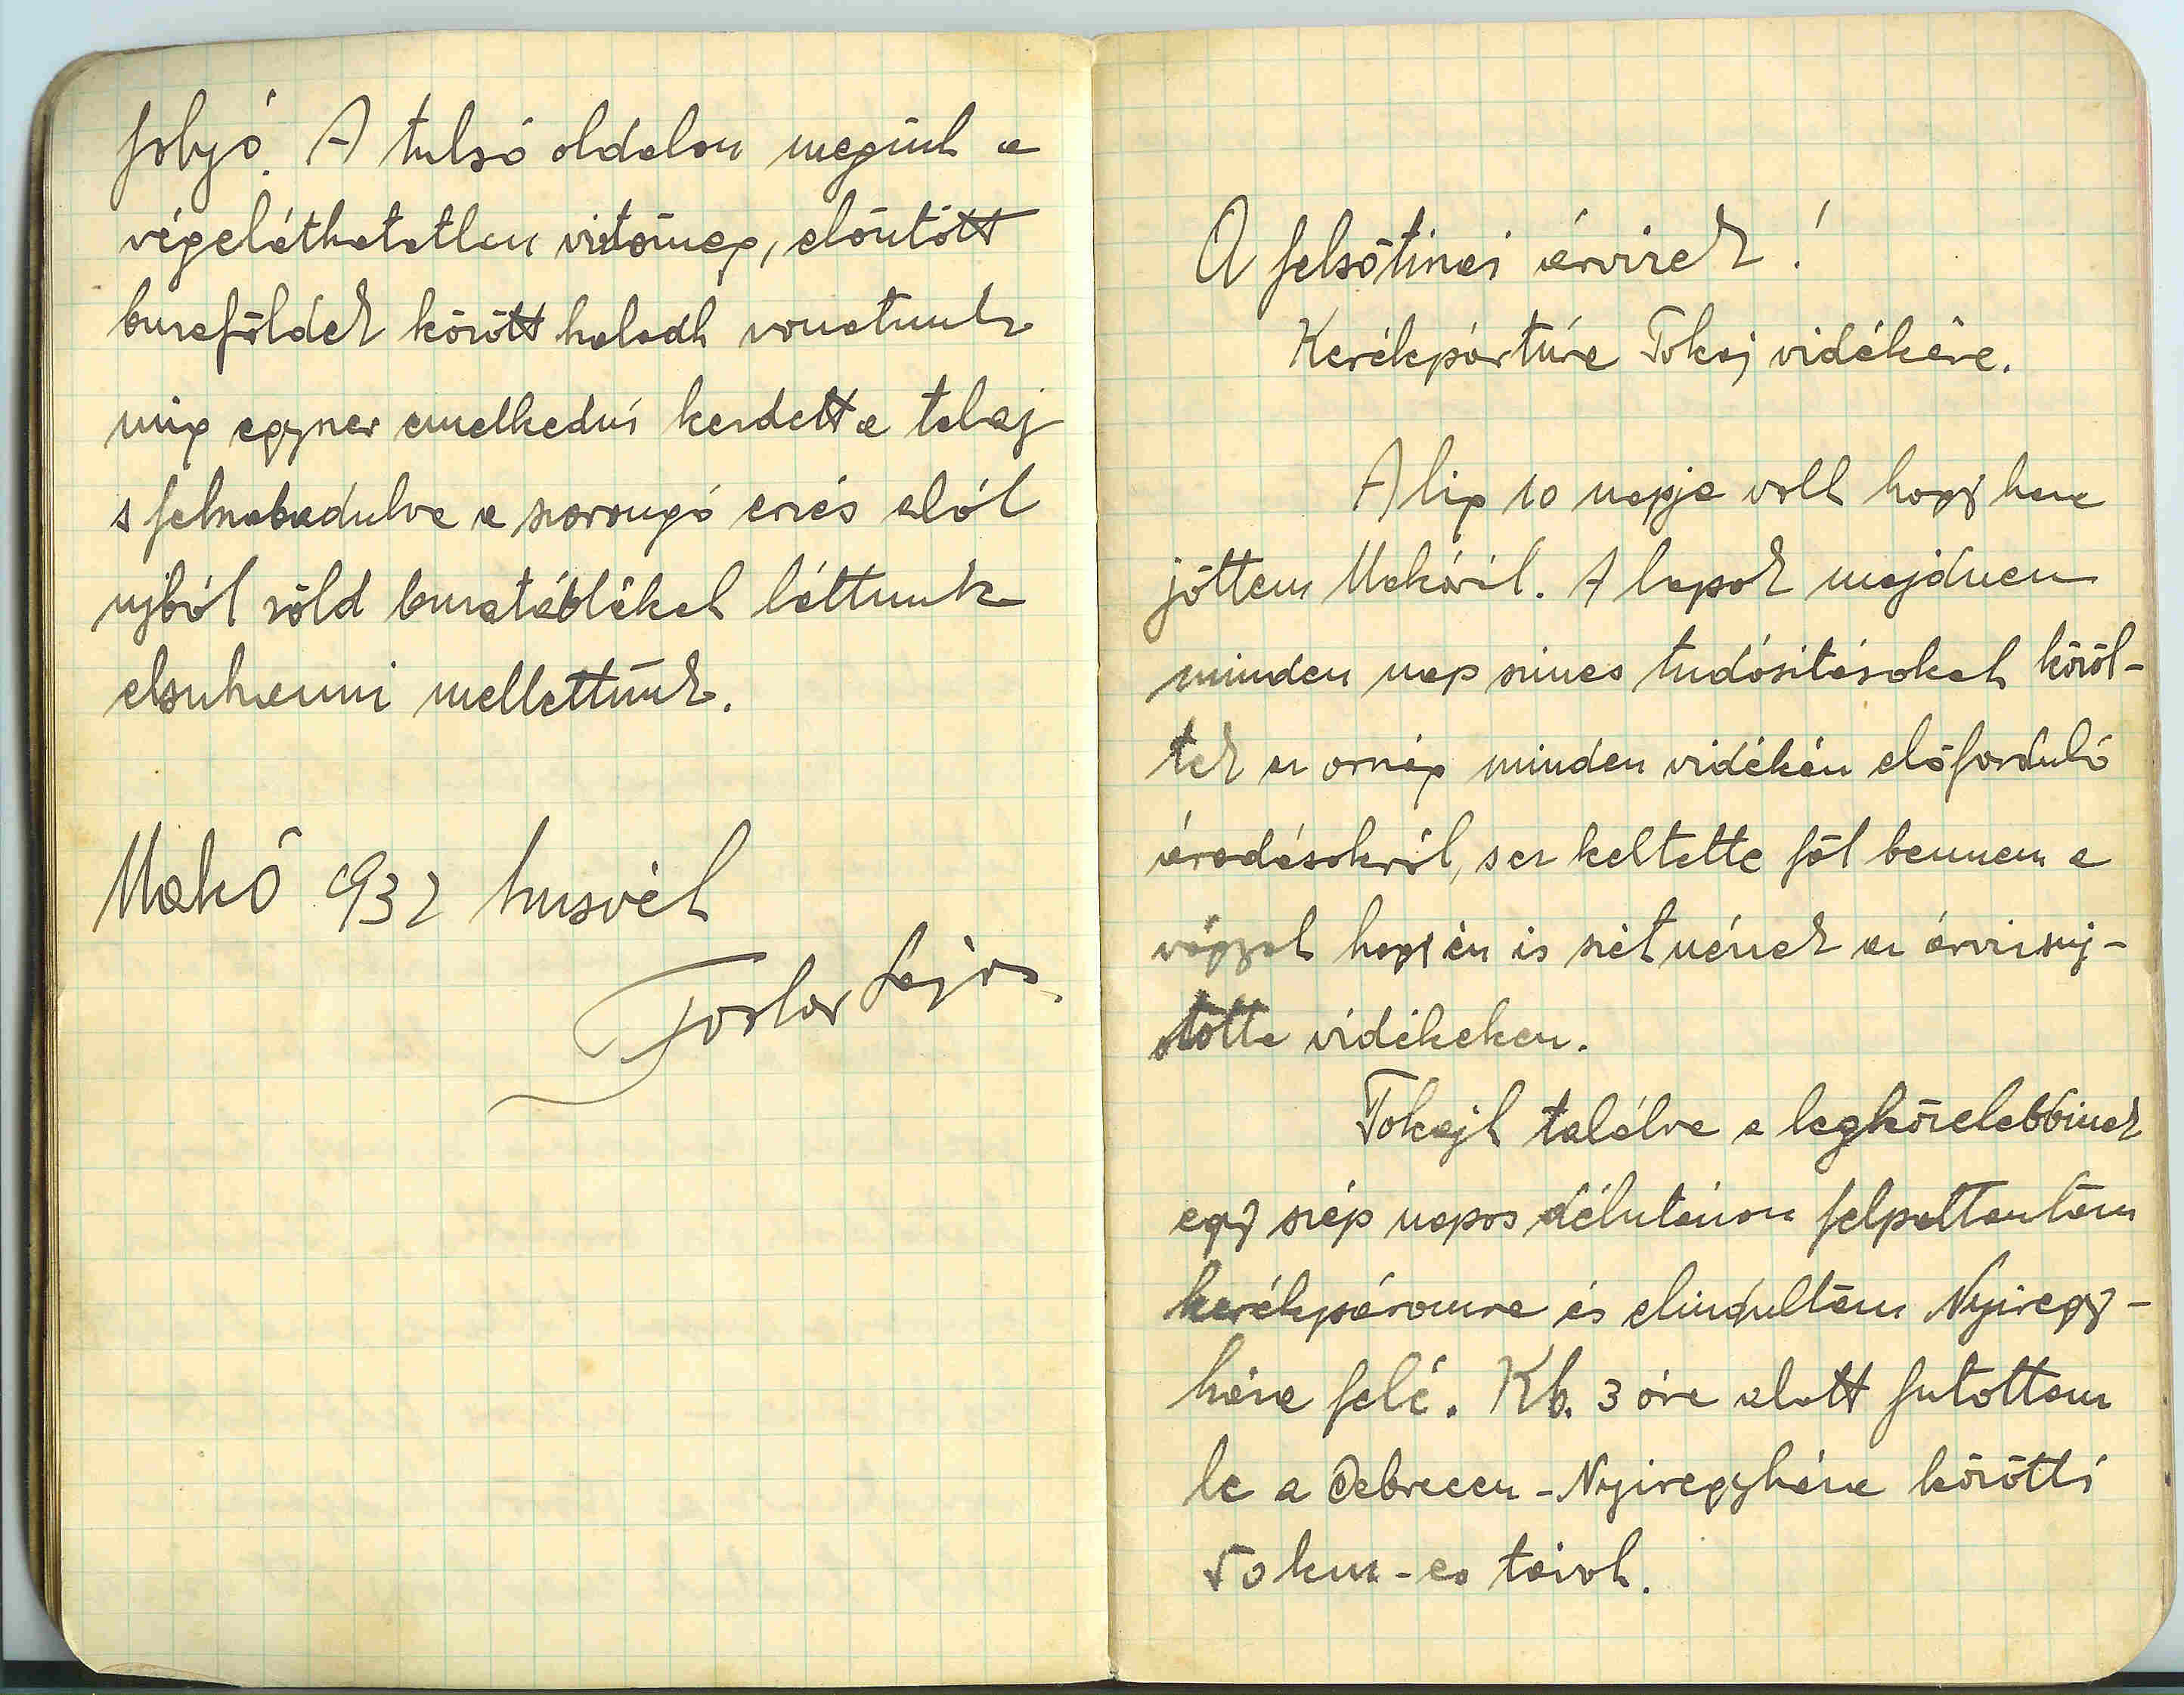 folyó. A tulsó oldalon megint a
végeláthatatlan viztömeg, elöntött
buzaföldek között haladt vonatunk
mig egyszer emelkedni kezdett a talaj
s felszabadulva a szorongó érzés alól
ujból zöld buzatáblákat láttunk
elsuhanni mellettünk.
Makó 932 husvét
Lajos.
A felsőtiszai árvizek!
Kerékpártúra Tokaj vidékére.
Alig 10 napja volt hogy haza
jöttem Makóról. A lapok majdnem
minden nap szines tudósitásokat közöl-
tek az ország minden vidékén előforduló
áradásokról, s ez keltette föl bennem a
vágyat hogy én is szét nézzek az árvizsuj-
totta vidékeken.
Tokajt találva a legközelebbinek
egy szép napos délutánon felpattantam
kerékpáromra és elindultam Nyiregy-
háza felé. Kb. 3 óra alatt futottam
le a Debrecen - Nyiregyháza közötti
50 km-es távot.